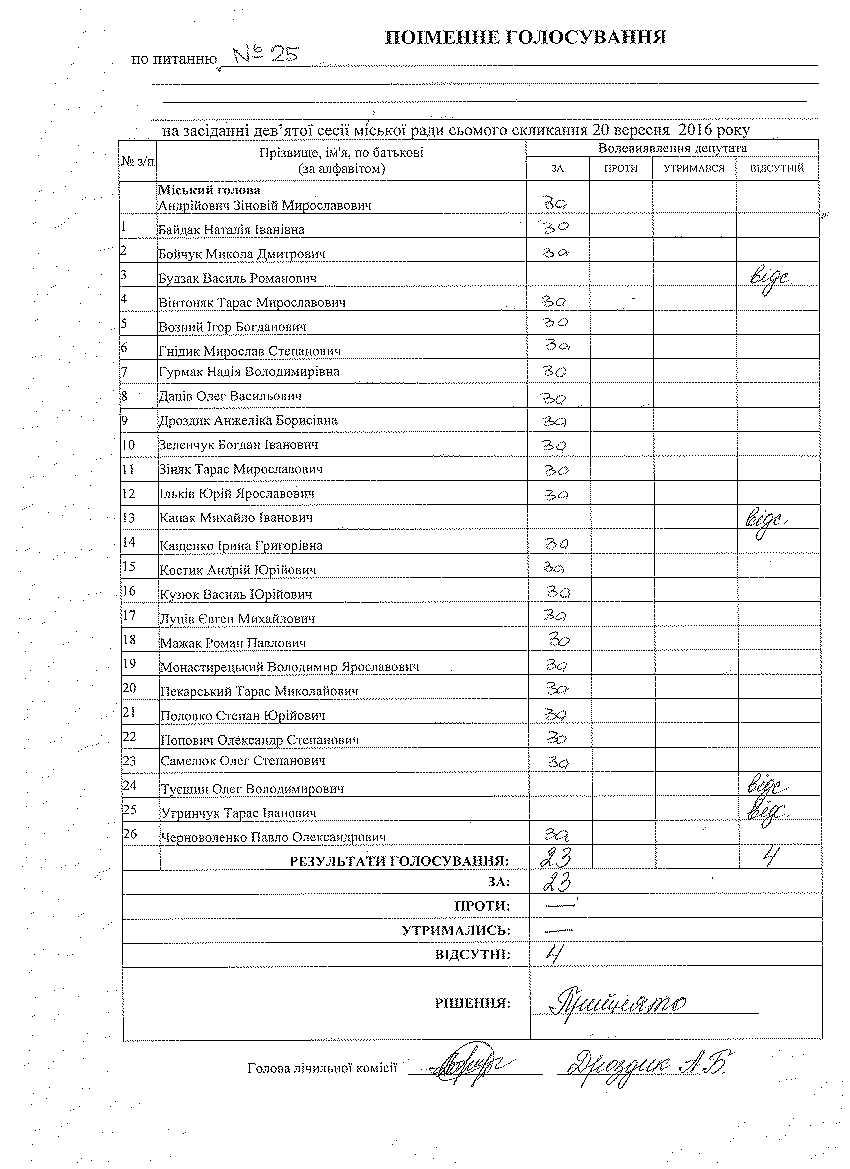 ПОІМЕННЕ ГОЛОСУВАННЯ
по питанню № 25
на засіданні дев’ятої сесії міської ради сьомого скликання 20 вересня 2016 року
№ з/п Прізвище, ім'я, по батькові (за алфавітом) Волевиявлення депутата
ЗА ПРОТИ УТРИМАВСЯ ВІДСУТНІЙ
Міський голова
Андрійович Зіновій Мирославович за
1 Байдак Наталія Іванівна за
2 Бойчук Микола Дмитрович за
3 Будзак Василь Романович відс
4 Вінтоняк Тарас Мирославович за
5 Возний Ігор Богданович за
6 Гнідик Мирослав Степанович за
7 Гурмак Надія Володимирівна за
8 Даців Олег Васильович за
9 Дроздик Анжеліка Борисівна за
10 Зеленчук Богдан Іванович за
11 Зіняк Тарас Мирославович за
12 Ільків Юрій Ярославович за
13 Канак Михайло Іванович відс.
14 Кащенко Ірина Григорівна за
15 Костик Андрій Юрійович за
16 Кузюк Василь Юрійович за
17 Луців Євген Михайлович за
18 Мажак Роман Павлович за
19 Монастирецький Володимир Ярославович за
20 Пекарський Тарас Миколайович за
21 Половко Степан Юрійович за
22 Попович Олександр Степанович за
23 Самелюк Олег Степанович за
24 Туєшин Олег Володимирович відс
25 Угринчук Тарас Іванович відс.
26 Черноволенко Павло Олександрович за
РЕЗУЛЬТАТИ ГОЛОСУВАННЯ: 23 4
ЗА: 23
ПРОТИ: —
УТРИМАЛИСЬ: —
ВІДСУТНІ: 4
РІШЕННЯ: Прийнято
Голова лічильної комісії Дроздик А.Б.